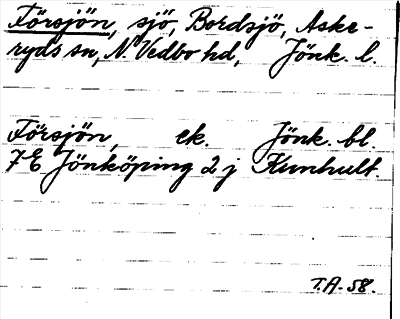 Försjön, sjö, Bordsjö, Aske-
ryds sn, N. Vedbo hd, Jönk. l.
Försjön, ek. Jönk. bl.
7E Jönköping 2 j Kunhult.
T.A. 58.